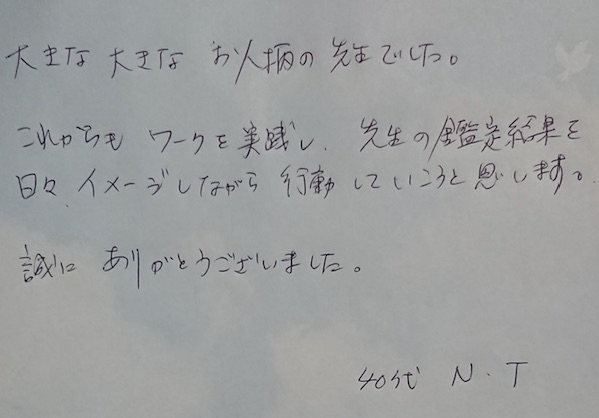 大きな 大きな お人柄の 先生でした。
これからも ワークを 実践し、先生の鑑定結果を
日々、イメージしながら 行動していこうと思います。
誠に ありがとうございました。
40代 N・T